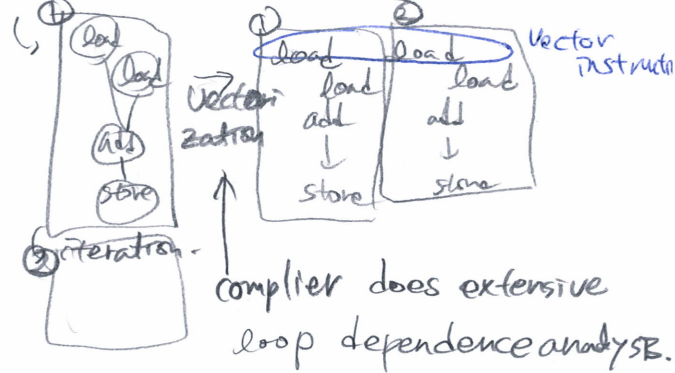 ①
load
load
add
store
② iteration.
Vectori
zation
① ②
load load
load load
add add
store store
Vector
instructi
complier does extensive
loop dependence analysis.